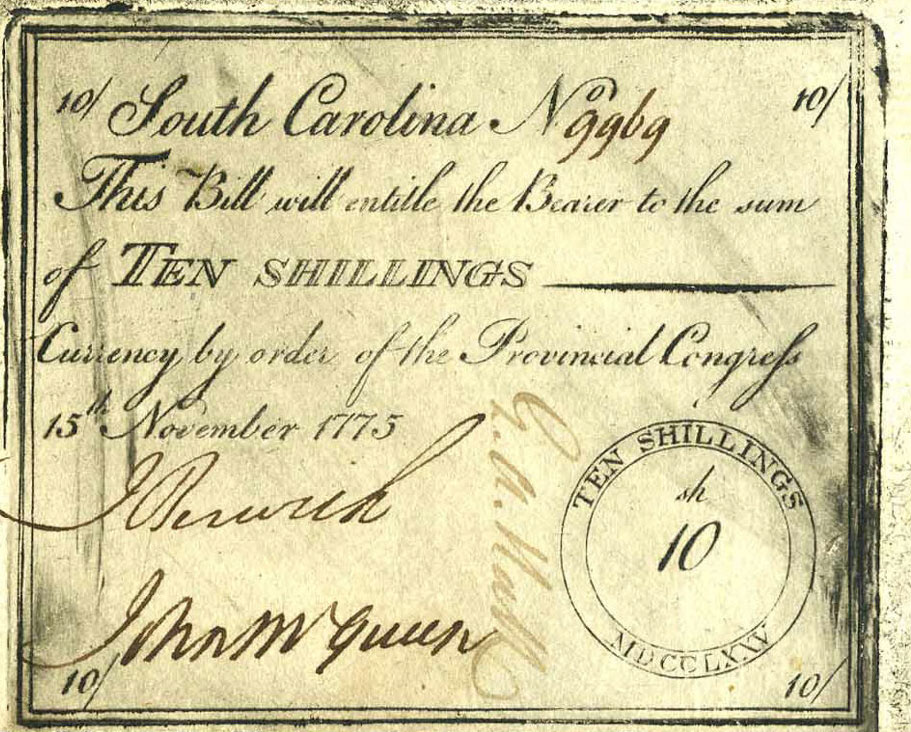 10/ South Carolina No 9969 10/
This Bill will entitle the Bearer to the sum
of TEN SHILLINGS
Currency by order of the Provincial Congress
15th November 1775
J Berwick
John McQueen
G. A. Hall
TEN SHILLINGS
sh
10
MDCCLXXV
10/ 10/